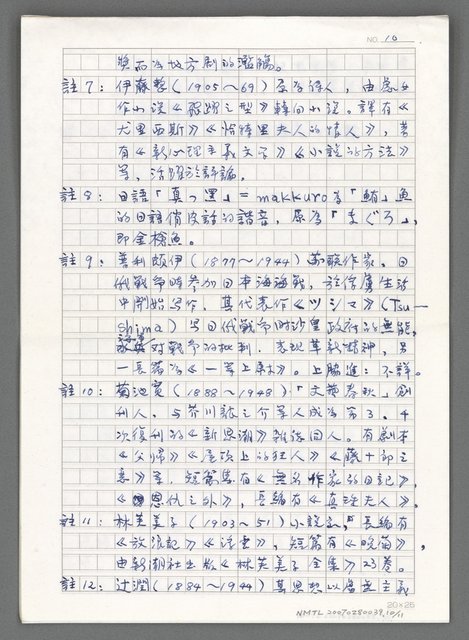 NO. 10
獎而為地方劇的濫觴。
註7：伊藤整（1905～69）原為詩人，由處女
作小說《幽鬼之型》轉向小說。譯有《
尤里西斯》《恰特里夫人的情人》，著
有《新心理主義文學》《小說的方法》
等，活躍於評論。
註8：日語「真っ黑」＝makkuro為「鮪」魚
的日語俏皮話的諧音，原為「まぐろ」，
即金槍魚。
註9：普利頗伊（1877～1944）蘇聯作家。日
俄戰爭時參加日本海海戰，於俘虜生活
中開始寫作，其代表作《ツシマ》（Tsu-
shima）寫日俄戰爭時沙皇政府的無能，
對戰爭的批判，表現革新精神，另
一長篇為《一等上尉》。上脇進：不詳。
註10：菊池寬（1888～1948）「文藝春秋」創
刊人，與芥川龍之介等人成為第3、4
次復刊的《新思潮》雜誌同人。有劇本
《父歸》《屋頂上的狂人》《藤十郎之
戀》等，短篇集有《無名作家的日記》，
《恩仇之外》，長編有《真珠夫人》。
註11：林芙美子（1903～51）小說家，長編有
《放浪記》《浮雲》，短篇有《晚菊》，
由新潮社出版《林芙美子全集》23卷。
註12：辻潤（1884～1944）其思想以虛無主義
20×25
NMTL 20070280039, 10/11